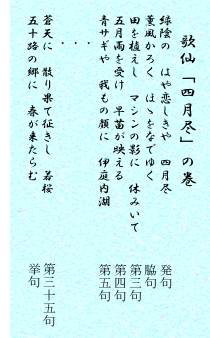 歌仙「四月尽」の巻
緑陰の　はや恋しきや　四月尽　発句
薫風かろく　ほゝをなでゆく　脇句
田を植えし　マシンの影に　休みいて　第三句
五月雨を受け　早苗が映える　第四句
青サギや　我もの顔に　伊庭内湖　第五句
・・・
蒼天に　散り果て征きし　若桜　第三十五句
五十路の郷に　春が来たらむ　挙句